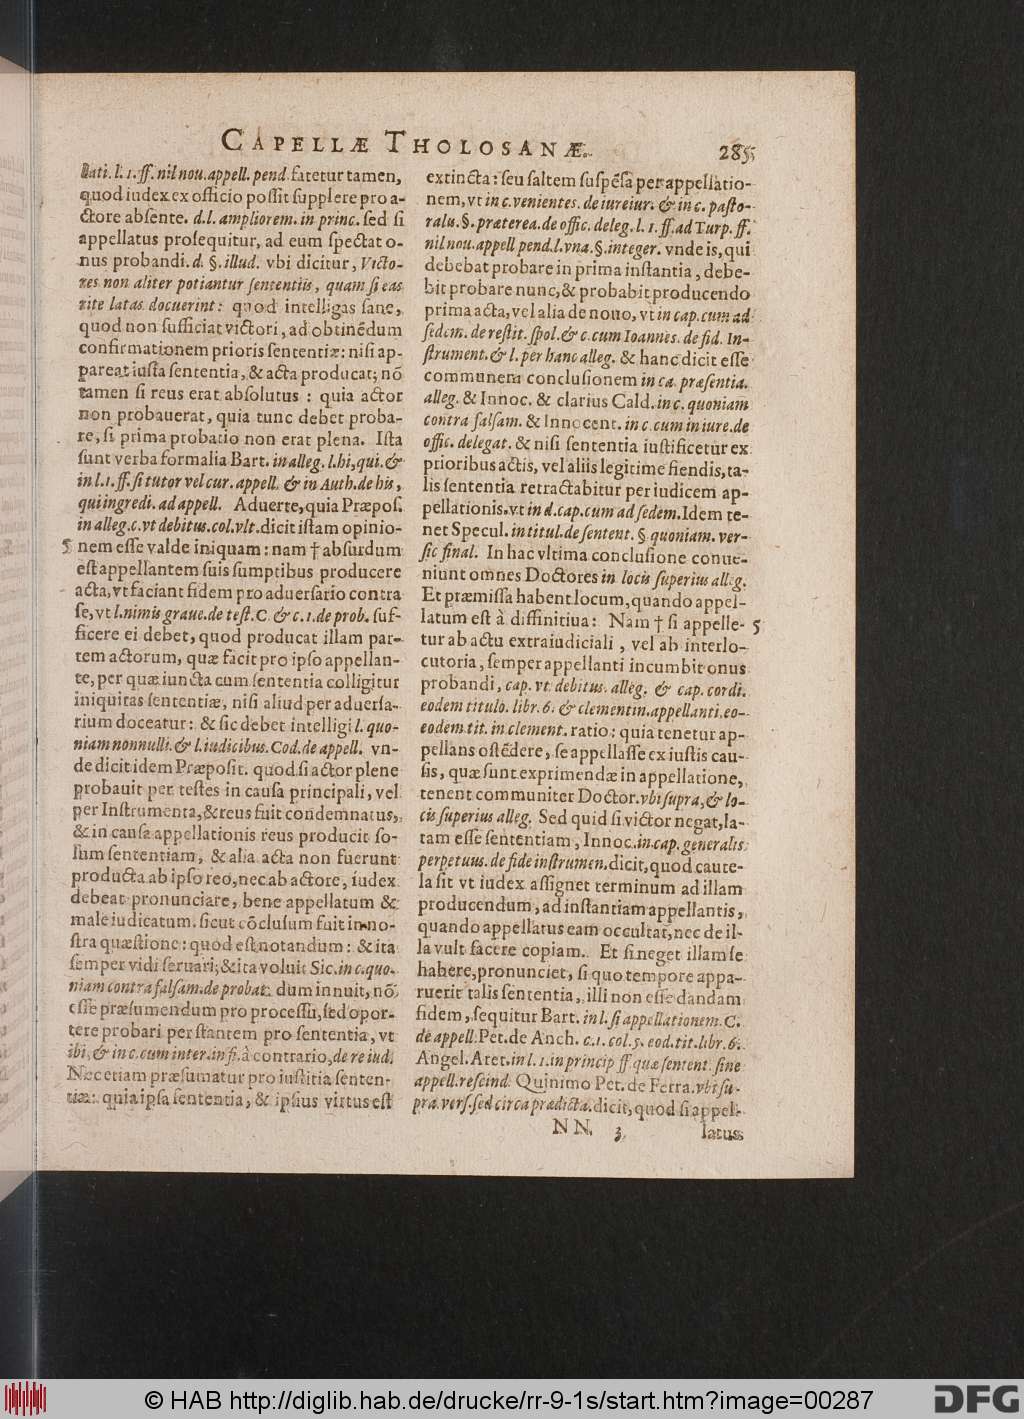 CAPELLÆ THOLOSANÆ. 285
lati. l. 1. ff. nil nou. appell. pend. fatetur tamen,
quod iudex ex officio possit supplere pro a-
ctore absente. d. l. ampliorem. in princ. sed si
appellatus prosequitur, ad eum spectat o-
nus probandi. d. §. illud. vbi dicitur, Victo-
res non aliter potiantur sententiis, quam si eas
rite latas docuerint: quod intelligas sane,
quod non sufficiat victori, ad obtinēdum
confirmationem prioris sententiæ: nisi ap-
pareat iusta sententia, & acta producat; nō
tamen si reus erat absolutus: quia actor
non probauerat, quia tunc debet proba-
re, si prima probatio non erat plena. Ista
sunt verba formalia Bart. in alleg. l. hi, qui. &
in l. 1. ff. si tutor vel cur. appell. & in Auth. de his,
qui ingredi. ad appell. Aduerte, quia Præpos.
in alleg. c. vt debitus. col. vlt. dicit istam opinio-
5 nem esse valde iniquam: nam † absurdum
est appellantem suis sumptibus producere
acta, vt faciant fidem pro aduersario contra
se, vt l. nimis graue. de test. C. & c. 1. de prob. suf-
ficere ei debet, quod producat illam par-
tem actorum, quæ facit pro ipso appellan-
te, per quæ iuncta cum sententia colligitur
iniquitas sententiæ, nisi aliud per aduersa-
rium doceatur: & sic debet intelligi l. quo-
niam nonnulli. & l. iudicibus. Cod. de appell. vn-
de dicit idem Præposit. quod si actor plene
probauit per testes in causa principali, vel
per Instrumenta, & reus fuit condemnatus,
& in causa appellationis reus producit so-
lum sententiam, & alia acta non fuerunt
producta ab ipso reo, nec ab actore, iudex
debeat pronunciare, bene appellatum &
male iudicatum. sicut cōclusum fuit in no-
stra quæstione: quod est notandum: & ita
semper vidi seruari; & ita voluit Sic. in c. quo-
niam contra falsam. de probat. dum innuit, nō
esse præsumendum pro processu, sed opor-
tere probari per stantem pro sententia, vt
ibi, & in c. cum inter. in fi. à contrario, de re iud.
Nec etiam præsumatur pro iustitia senten-
tiæ: quia ipsa sententia, & ipsius virtus est
extincta: seu saltem suspēsa per appellatio-
nem, vt in c. venientes. de iureiur. & in c. pasto-
ralis. §. præterea. de offic. deleg. l. 1. ff. ad Turp. ff.
nil nou. appell pend. l. vna. §. integer. vnde is, qui
debebat probare in prima instantia, debe-
bit probare nunc, & probabit producendo
prima acta, vel alia de nouo, vt in cap. cum ad
sedem. de restit. spol. & c. cum Ioannes. de fid. In-
strument. & l. per hanc alleg. & hanc dicit esse
communem conclusionem in ca. præsentia.
alleg. & Innoc. & clarius Cald. in c. quoniam
contra falsam. & Innocent. in c. cum in iure. de
offic. delegat. & nisi sententia iustificetur ex
prioribus actis, vel aliis legitime fiendis, ta-
lis sententia retractabitur per iudicem ap-
pellationis. vt in d. cap. cum ad sedem. Idem te-
net Specul. in titul. de sentent. §. quoniam. ver-
sic final. In hac vltima conclusione conue-
niunt omnes Doctores in locis superius alleg.
Et præmissa habent locum, quando appel-
latum est à diffinitiua: Nam † si appelle- 5
tur ab actu extraiudiciali, vel ab interlo-
cutoria, semper appellanti incumbit onus
probandi, cap. vt debitus. alleg. & cap. cordi.
eodem titulo. libr. 6. & clementin. appellanti. eo-
eodem. tit. in clement. ratio: quia tenetur ap-
pellans ostēdere, se appellasse ex iustis cau-
sis, quæ sunt exprimendæ in appellatione,
tenent communiter Doctor. vbi supra, & lo-
cis superius alleg. Sed quid si victor negat, la-
tam esse sententiam, Innoc. in cap. generalis
perpetuus. de fide instrumen. dicit, quod caute-
la sit vt iudex assignet terminum ad illam
producendum, ad instantiam appellantis,
quando appellatus eam occultat, nec de il-
la vult facere copiam. Et si neget illam se
habere, pronunciet, si quo tempore appa-
ruerit talis sententia, illi non esse dandam
fidem, sequitur Bart. in l. si appellationem. C.
de appell. Pet. de Anch. c. 1. col. 5. eod. tit. libr. 6.
Angel. Aret. in l. 1. in princip ff. quæ sentent. sine
appell. rescind. Quinimo Pet. de Ferra. vbi su-
pra. vers. sed circa prædicta. dicit, quod si appel-
NN. 3. latus
© HAB http://diglib.hab.de/drucke/rr-9-1s/start.htm?image=00287
DFG